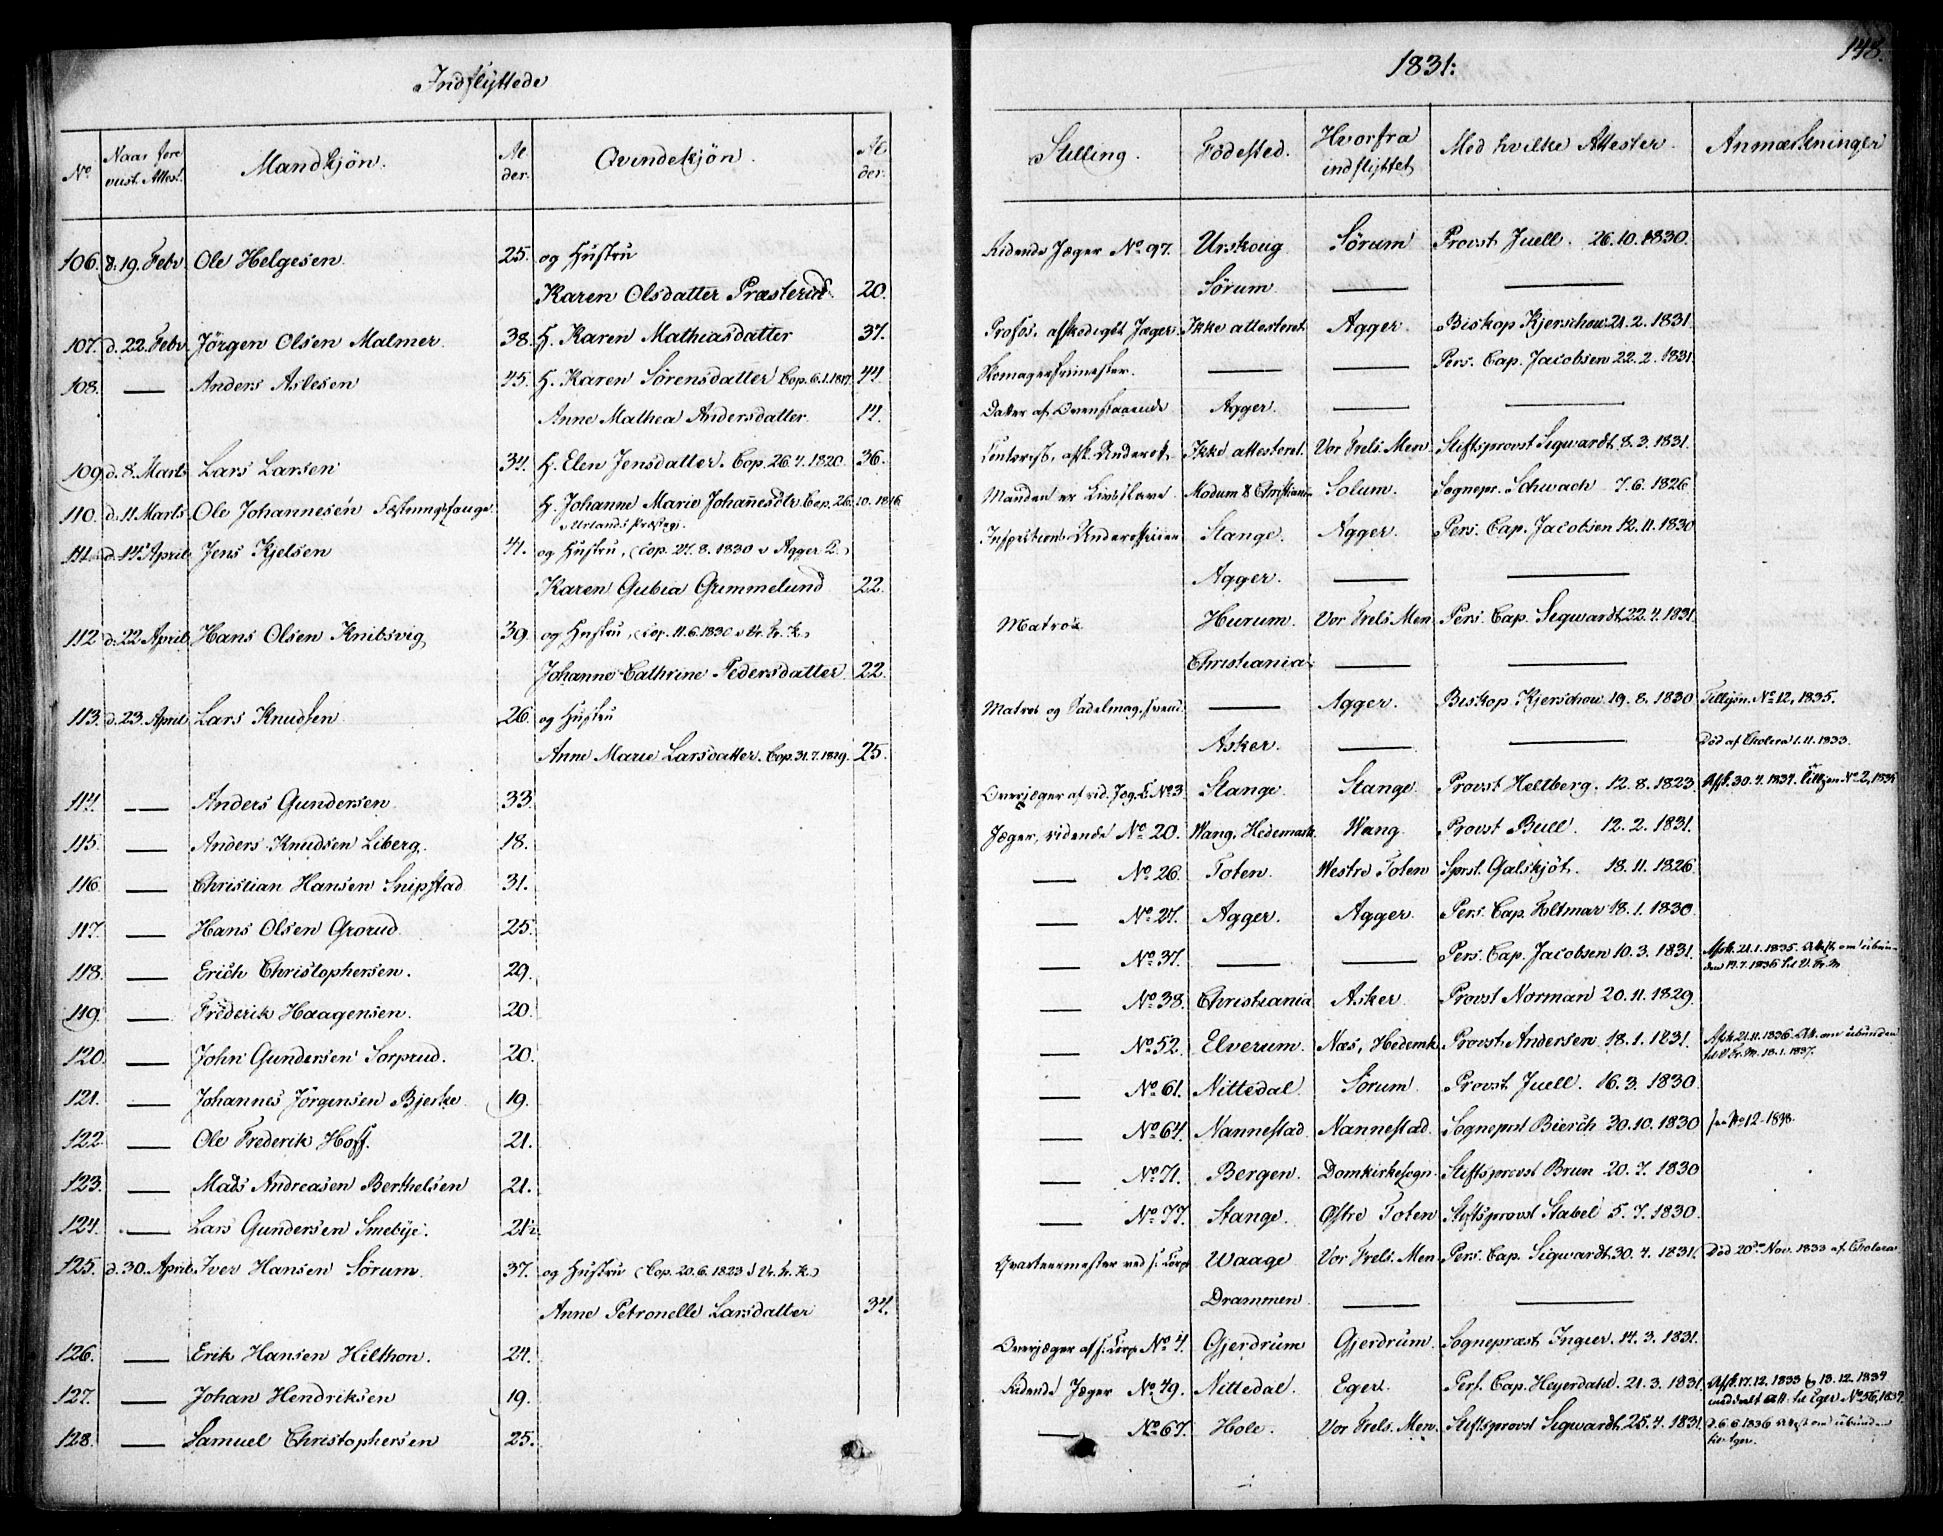 Indflyttede
No | Naar fore vist Attest. | Mandkjön. | Al der. | Qvindekjön. | Al der.
106. | d. 19. Febr. | Ole Helgesen | 25. | og Hustru
Karen Olsdatter Præsterud | 20.
107. | d. 22. Febr. | Jörgen Olsen Malmer | 38. | H. Karen Mathiasdatter | 37.
108. | — | Anders Aslesen | 45. | H. Karen Sörensdatter Cop. 6.1.1817. | 44.
Anne Mathea Andersdatter | 14.
109. | d. 8. Marts | Lars Larsen | 34. | H. Elen Jensdatter. Cop. 26.4.1820. | 36.
110. | d. 11 Marts | Ole Johannesen Fæstningsfange | H. Johanne Marie Johañesdtr Cop. 26.10.1816
Urlands Præstegj.
111. | d. 14. April | Jens Kjelsen | og Hustru, (Cop. 27.8.1830 i Agger K.)
Karen Gubia Grimmelund | 22.
112. | d. 22. April | Hans Olsen Knibsvig | 39. | og Hustru, (Cop. 11.6.1830 i Vr. Fr. K.)
Johanne Cathrine Pedersdatter | 22.
113. | d. 23. April | Lars Knudsen | 26. | og Hustru
Anne Marie Larsdatter. Cop. 31.7.1829. | 25.
114. | — | Anders Gundersen | 33.
115. | — | Anders Knudsen Liberg. | 18.
116. | — | Christian Hansen Snipstad | 31.
117. | — | Hans Olsen Grorud | 25.
118. | — | Erich Christophersen. | 29.
119. | — | Frederik Haagensen. | 20.
120. | — | John Gundersen Sorprud. | 20.
121. | — | Johannes Jörgensen Bjerke | 19.
122. | — | Ole Frederik Hoff. | 21.
123. | — | Mads Andreasen Berthelsen | 21.
124. | — | Lars Gundersen Smebÿe. | 21½
125. | d. 30. April | Iver Hansen Sörum. | 37. | og Hustru (Cop. 20.6.1823 i Vr. Fr. K.)
Anne Petronelle Larsdatter | 34.
126. | — | Erik Hansen Hilthon. | 24.
127. | — | Johan Hendriksen | 19.
128. | — | Samuel Christophersen | 25.
1831.
148.
Stilling. | Födested. | Hvorfra indflyttet | Med hvilke Attester. | Anmærkninger
Ridende Jæger No 97. | Urskoug | Sörum | Provst Juell. 26.10.1830.
Sörum | — | —
Profos, afskediget Jæger. | Ikke attesteret | Agger. | Biskop Kjerschow 21.2.1831.
Skomagerfrimester. | — | — | Pers. Cap. Jacobsen 22.2.1831
Datter af Ovenstaaende | Agger. | — | —
afsk. Underof. | Ikke attesteret. | Vor Frels. Men. | Stiftsprovst Sigwardt. 8.3.1831.
Manden er Livsslave | Modum & Christiania | Solum. | Sognepr. Schwach 7.6.1826
Inspections Underofficier | Stange. | Agger. | Pers. Cap. Jacobsen 12.11.1830
Agger. | — | —
Matros | Hurum. | Vor Frels. Men. | Pers. Cap. Sigwardt 22.4.1831.
Christiania | — | —
Matros og Sadelmag. svend. | — | Agger. | Biskop Kjerschow 19.8.1830 | Tillysn. No 12, 1835.
Asker. | — | — | Död af Cholera 1.11.1833.
Overjæger af rid. Jæg. C. No 3. | Stange. | Stange | Provst Heltberg. 12.8.1823. | Afsk. 30.4.1834. Tillysn No 2, 1835
Jæger, ridende No 20. | Wang, Hedemark. | Wang. | Provst Bull. 12.2.1831.
— No 26. | Toten. | Westre Toten | Sprst. Galskjöt. 18.11.1826.
— No 27. | Agger. | Agger. | Pers. Cap. Foltmar 18.1.1830.
— No 37. | — | — | Pers. Cap. Jacobsen 10.3.1831. | Afsk. 21.1.1835. Attest om ubun-
den 19.7.1836 til V. Fr. M.
— No 38. | Christiania | Asker. | Provst Norman 20.11.1829.
— No 52. | Elverum. | Næs, Hedemk. | Provst Andersen 18.1.1831. | Afsk. 21.11.1836. Att. om ubunden
til V. Fr. M. 18.1.1837.
— No 61. | Nittedal | Sörum. | Provst Juell. 16.3.1830.
— No 64. | Nannestad | Nannestad. | Sogneprst Bierch 30.10.1830 | No 12 1838.
— No 71. | Bergen. | Domkirkesogn. | Stiftsprovst Brun 20.7.1830
— No 77. | Stange. | Østre Toten | Stiftsprovst Stabel 5.7.1830.
Qvarteermester ved s. Corps | Waage | Vor Frels. Men. | Pers. Cap. Sigwardt. 30.4.1831. | Död 20de Nov. 1833 af Cholera
Drammen | — | —
Overjæger af s. Corps No 4. | Gjerdrum | Gjerdrum. | Sognepræst Ingier. 14.3.1831.
Ridende Jæger No 49. | Nittedal. | Eger. | Pers. Cap. Heyerdahl. 21.3.1831. | Afsk. 17.12.1833 13.12.1834
meddeelt Att. til Eger No 56, 1834.
— No 67. | Hole. | Vor Frels. Men. | Stiftsprovst Sigwardt. 25.4.1831. | d. 6.6.1836 Attest om ubunden
til Eger.